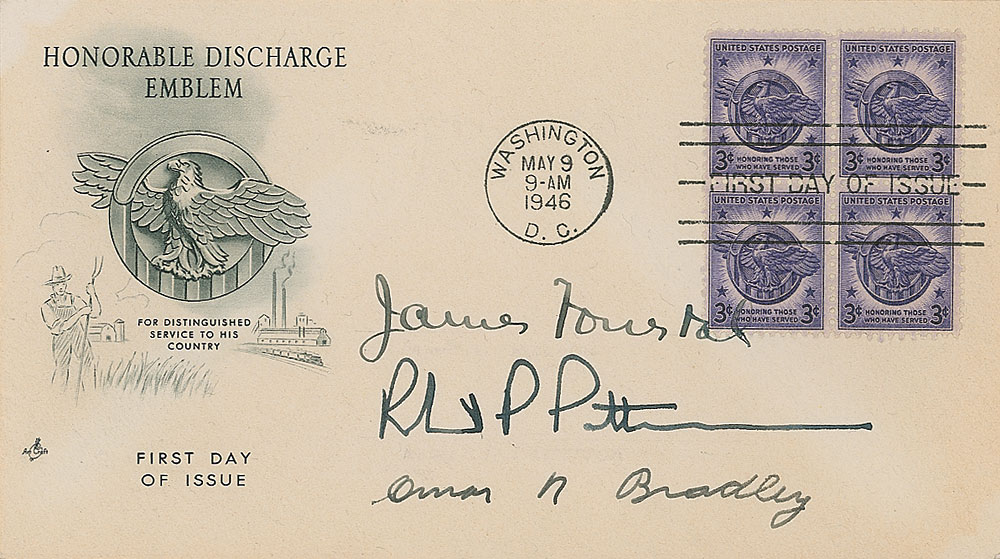 HONORABLE DISCHARGE
EMBLEM
FOR DISTINGUISHED
SERVICE TO HIS
COUNTRY
Art Craft
FIRST DAY
OF ISSUE
WASHINGTON
MAY 9
9-AM
1946
D. C.
UNITED STATES POSTAGE
3¢ HONORING THOSE WHO HAVE SERVED 3¢
UNITED STATES POSTAGE
3¢ HONORING THOSE WHO HAVE SERVED 3¢
FIRST DAY OF ISSUE
UNITED STATES POSTAGE
3¢ HONORING THOSE WHO HAVE SERVED 3¢
UNITED STATES POSTAGE
3¢ HONORING THOSE WHO HAVE SERVED 3¢
James Forrestal
Robt P Patterson
Omar N Bradley